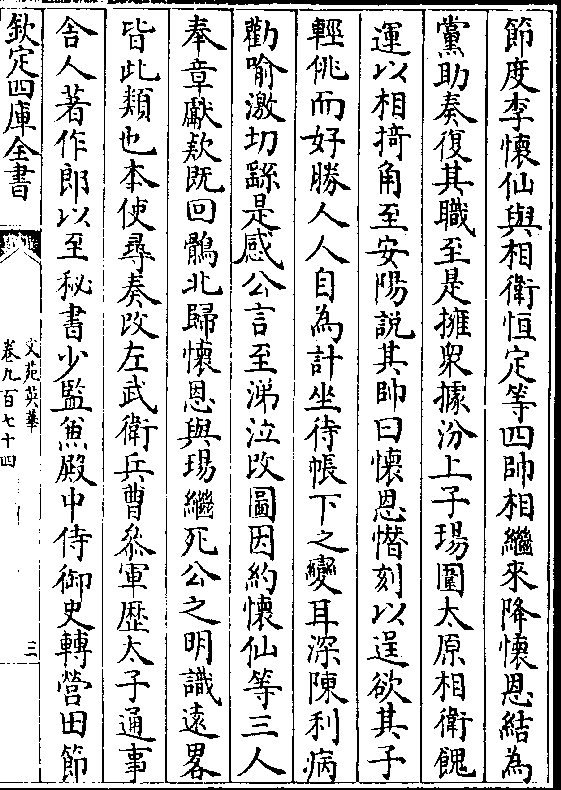 節度李懷仙與相衛恒定等四帥相繼來降懷恩結為
黨助奏復其職至是擁衆據汾上子瑒圍太原相衛餽
運以相掎角至安陽說其帥曰懷恩憯刻以逞欲其子
輕佻而好勝人人自為計坐待帳下之變耳深陳利病
勸喻激切繇是感公言至涕泣改圖因約懷仙等三人
奉章獻欵既回鶻北歸懷恩與瑒繼死公之明識遠畧
皆此類也本使尋奏改左武衛兵曹叅軍歷太子通事
舍人著作郎以至秘書少監兼殿中侍御史轉營田節
欽定四庫全書
文苑英華
卷九百七十四
三